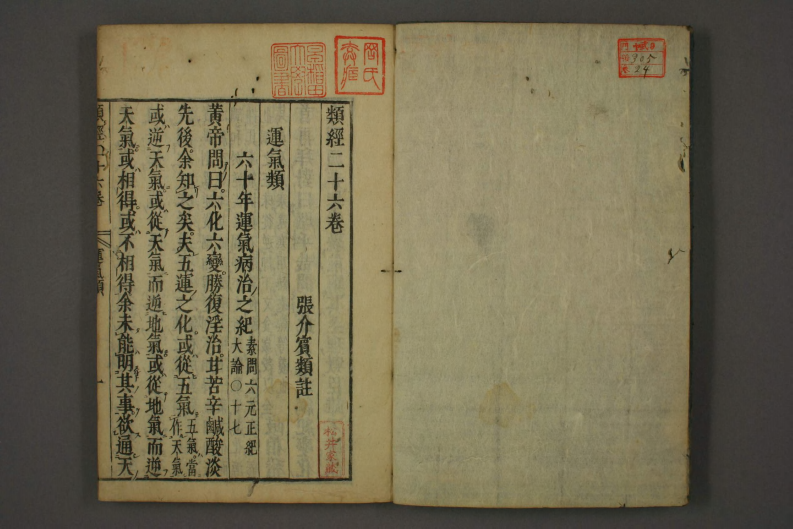 類經二十六卷
張介賓類註
運氣類
六十年運氣病治之紀 素問六元正紀大論〇十七
黃帝問曰六化六變勝復淫治甘苦辛鹹酸淡
先後余知之矣夫五運之化或從五氣 五氣當作天氣
或逆天氣或從天氣而逆地氣或從地氣而逆
天氣或相得或不相得余未能明其事欲通天
類經二十六卷
運氣類
一
305
24